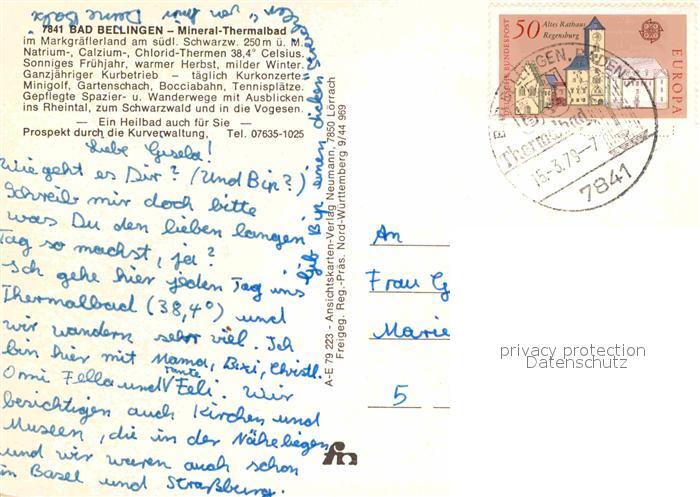 7841 BAD BELLINGEN – Mineral-Thermalbad
im Markgräflerland am südl. Schwarzw. 250 m ü. M.
Natrium-, Calzium-, Chlorid-Thermen 38,4° Celsius.
Sonniges Frühjahr, warmer Herbst, milder Winter.
Ganzjähriger Kurbetrieb – täglich Kurkonzerte,
Minigolf, Gartenschach, Bocciabahn, Tennisplätze.
Gepflegte Spazier- u. Wanderwege mit Ausblicken
ins Rheintal, zum Schwarzwald und in die Vogesen.
— Ein Heilbad auch für Sie —
Prospekt durch die Kurverwaltung, Tel. 07635-1025
Liebe Gisela!
Wie geht es Dir? (Und Bip?)
Schreib mir doch bitte
was Du den lieben langen
Tag so machst, ja?
Ich gehe hier jeden Tag ins
Thermalbad (38,4°) und
wir wandern sehr viel. Ich
bin hier mit Mama, Bixi, Christl.
Omi Fella und Tante Feli. Wir
besichtigen auch Kirchen und
Museen, die in der Nähe liegen
und wir waren auch schon
in Basel und Straßburg.
Gib Bip einen dicken
von mir! Deine
A-E 79 223 - Ansichtskarten-Verlag Neumann, 7850 Lörrach
Freigeg. Reg.-Präs. Nord-Württemberg 9/44 969
50 Altes Rathaus
Regensburg
DEUTSCHE BUNDESPOST
EUROPA
Thermalbad
15.-3.79-7
7841
An
Frau G
Marie
5
privacy protection
Datenschutz